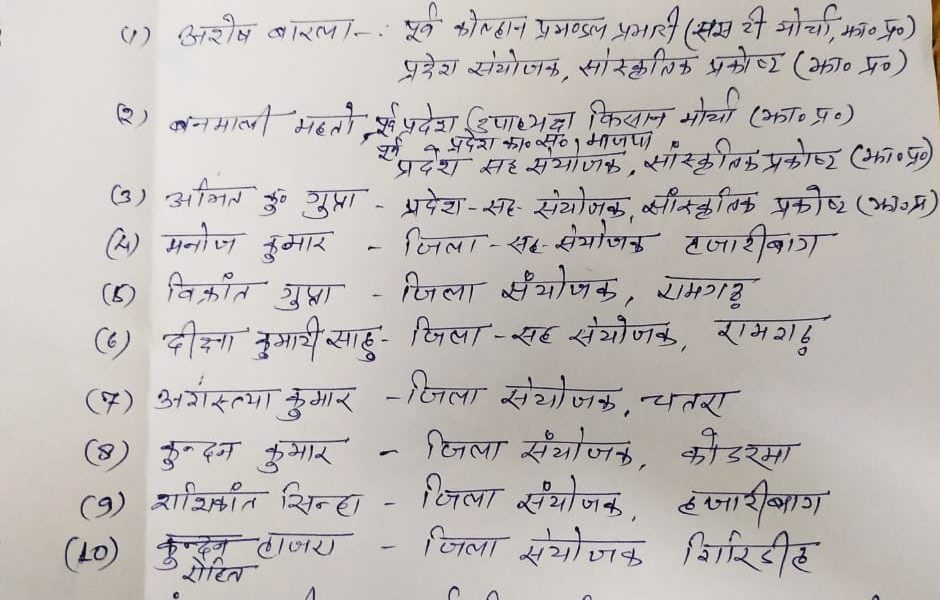 (1) अशेष बारला - : पूर्व कोल्हान प्रमण्डल प्रभारी (एस टी मोर्चा, झा० प्र०)
प्रदेश संयोजक, सांस्कृतिक प्रकोष्ट (झा० प्र०)
(2) बनमाली महतो, पूर्व प्रदेश उपाध्यक्ष किसान मोर्चा (झा० प्र०)
पूर्व प्रदेश का० स०, भाजपा
प्रदेश सह संयोजक, सांस्कृतिक प्रकोष्ट (झा० प्र०)
(3) अमित कु० गुप्ता - प्रदेश - सह - संयोजक, सांस्कृतिक प्रकोष्ट (झा० प्र)
(4) मनोज कुमार - जिला - सह - संयोजक हजारीबाग
(5) विक्रांत गुप्ता - जिला संयोजक, रामगढ़
(6) दीक्षा कुमारी साहु - जिला - सह संयोजक, रामगढ़
(7) अगस्त्या कुमार - जिला संयोजक, चतरा
(8) कुन्दन कुमार - जिला संयोजक, कोडरमा
(9) शशिकांत सिन्हा - जिला संयोजक, हजारीबाग
(10) कुन्दन हाजरा - जिला संयोजक गिरिडीह
रोहित